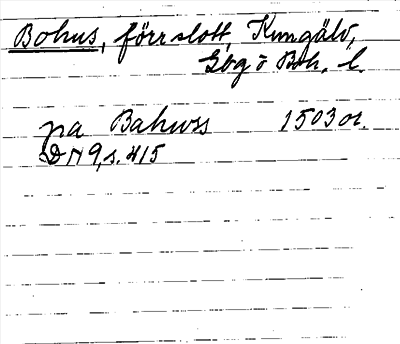 Bohus, förr slott, Kungälv,
Gbg o Boh. l.
pa Bahuss 1503 or.
DN 9, s. 415